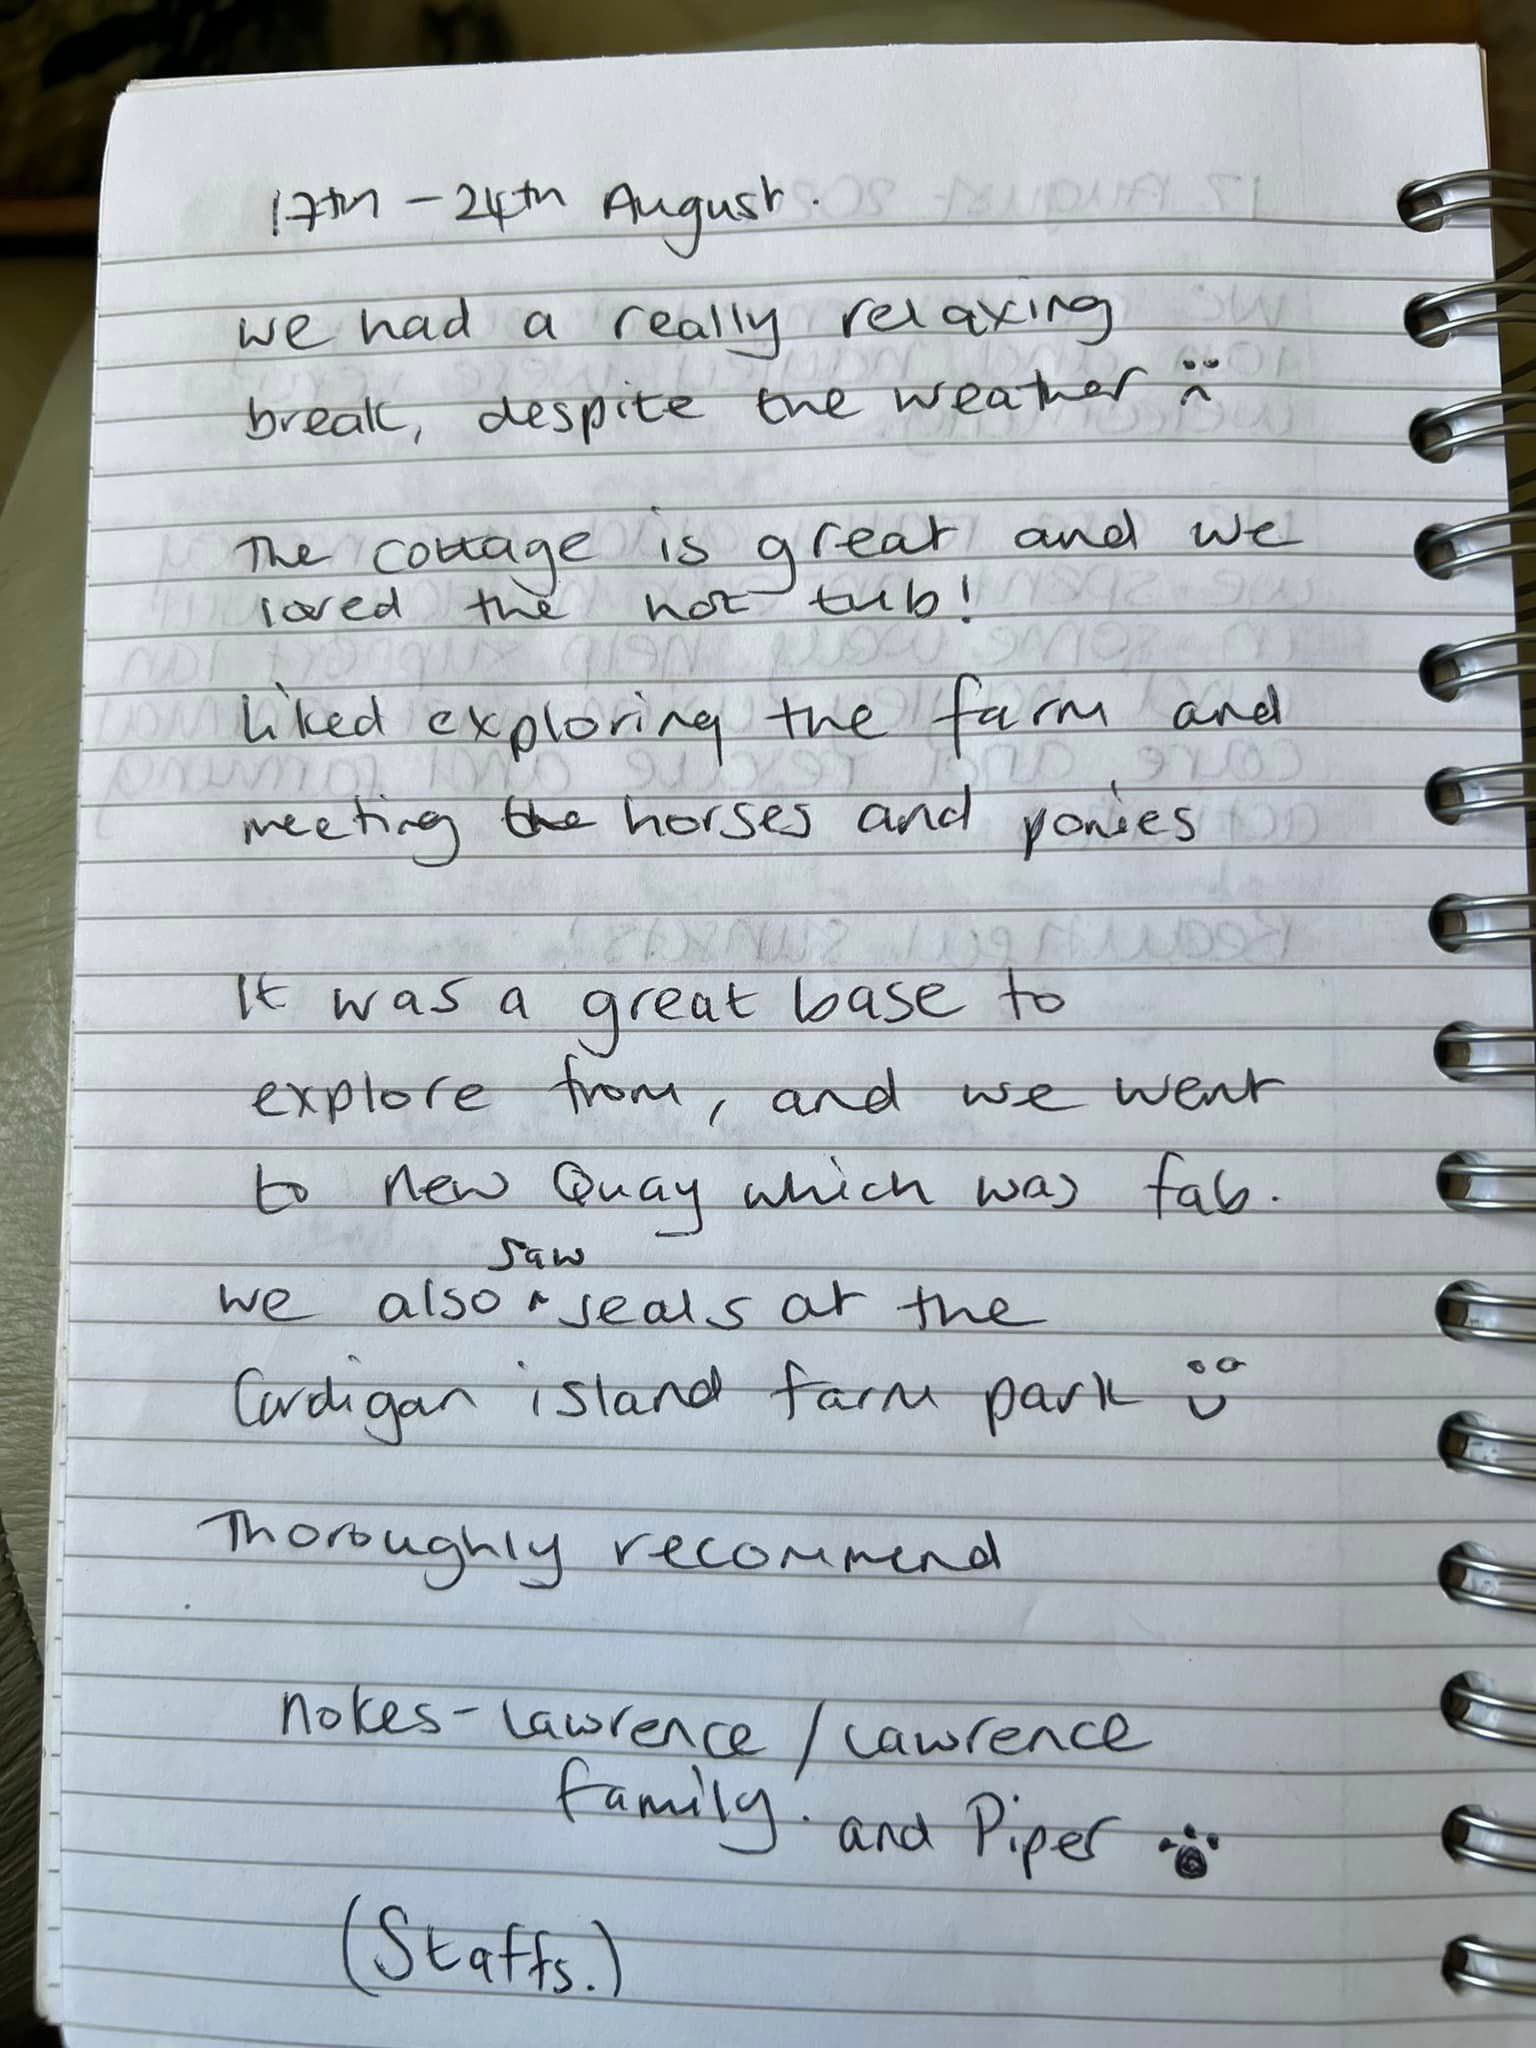 17th - 24th August.
We had a really relaxing
break, despite the weather ☹
The cottage is great and we
loved the hot tub!
Liked exploring the farm and
meeting the horses and ponies
It was a great base to
explore from, and we went
to New Quay which was fab.
We also saw seals at the
Cardigan island farm park ☺
Thoroughly recommend
Nokes-Lawrence / Lawrence
family. and Piper 🐾
(Staffs.)